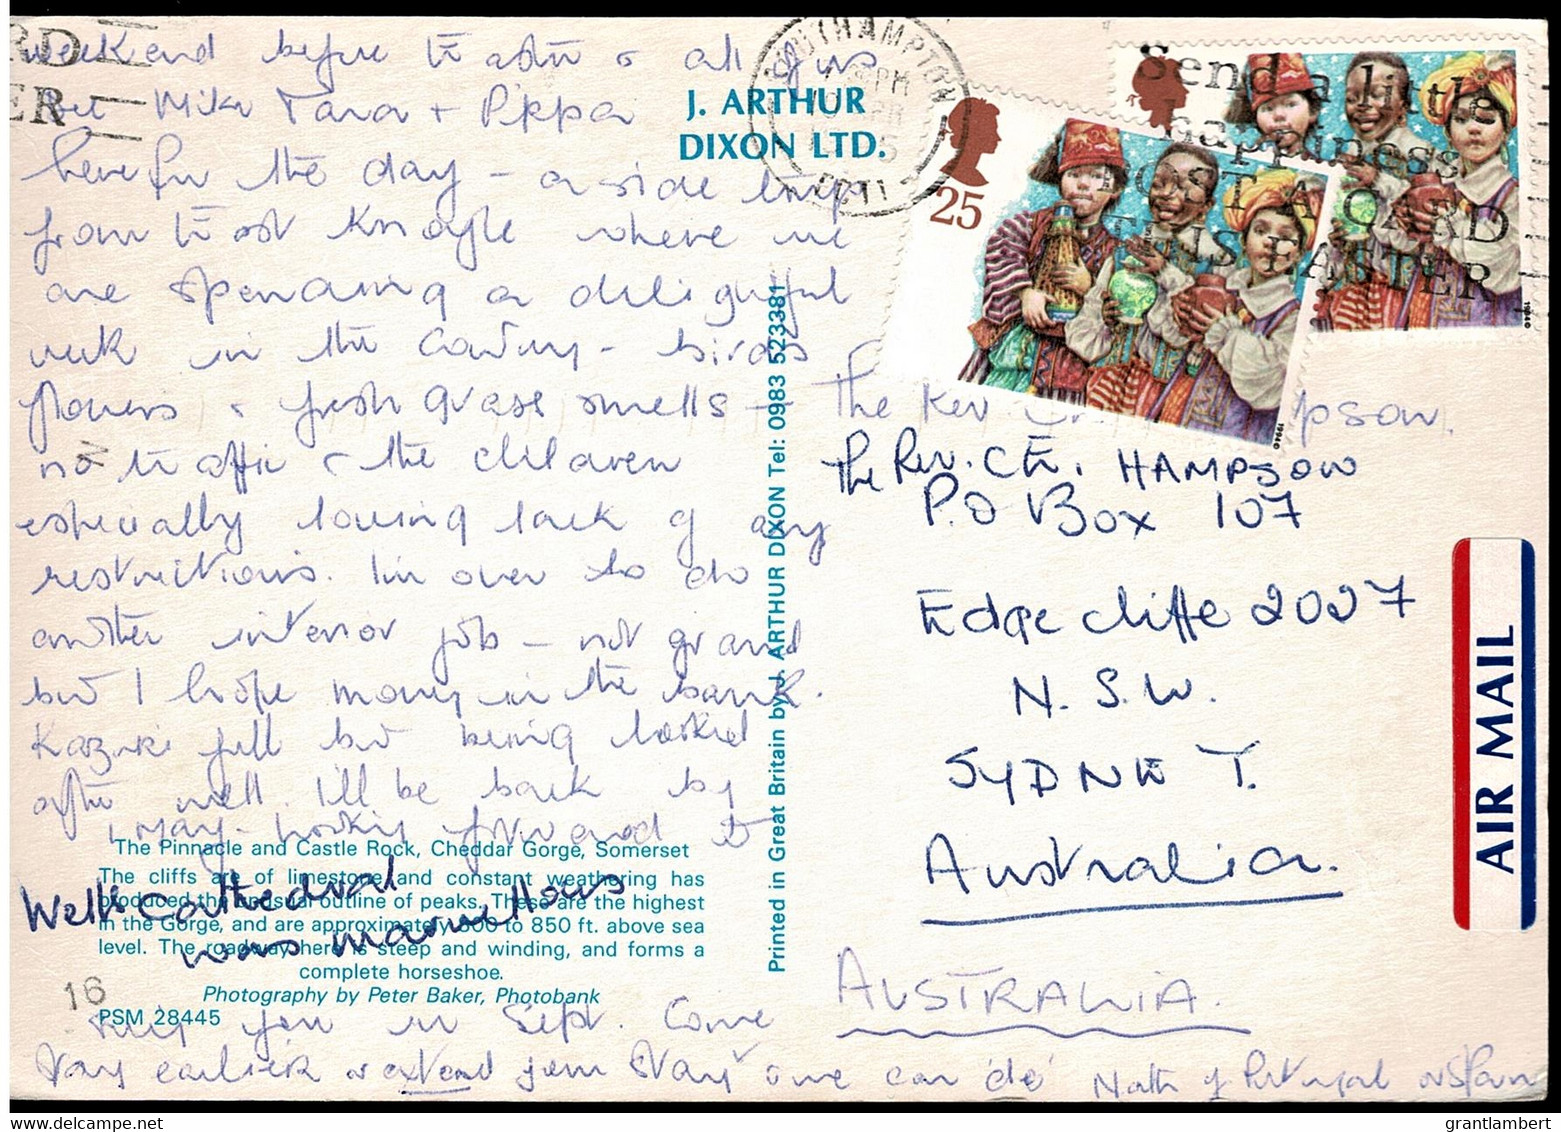 weekend before &
Mike Tara + Pippa
here for the day – a side trip
from where we
are spending a delightful
week in the country – birds
flowers & fresh grass smells –
no traffic & the children
especially loving lack of any
restrictions. I'm over to do
another interior job – not grand
but I hope money in the bank.
Kazuki full but being looked
after well. I'll be back by
May – looking forward to
seeing you in Sept. Come
stay earlier or extend your stay & we can 'do' North of Portugal or Spain
Wells Cathedral
was marvellous
J. ARTHUR
DIXON LTD.
The Pinnacle and Castle Rock, Cheddar Gorge, Somerset
The cliffs are of limestone and constant weathering has
produced the unusual outline of peaks. These are the highest
in the Gorge, and are approximately 800 to 850 ft. above sea
level. The roadway here is steep and winding, and forms a
complete horseshoe.
Photography by Peter Baker, Photobank
16
PSM 28445
Printed in Great Britain by J. ARTHUR DIXON Tel: 0983 523381
SOUTHAMPTON
Send a little
happiness
POST A CARD
25
1994
1994
The Rev
The Rev. C E. HAMPSON
P.O Box 107
Edgecliffe 2027
N.S.W.
SYDNEY.
Australia.
AUSTRALIA.
AIR MAIL
grantlambert